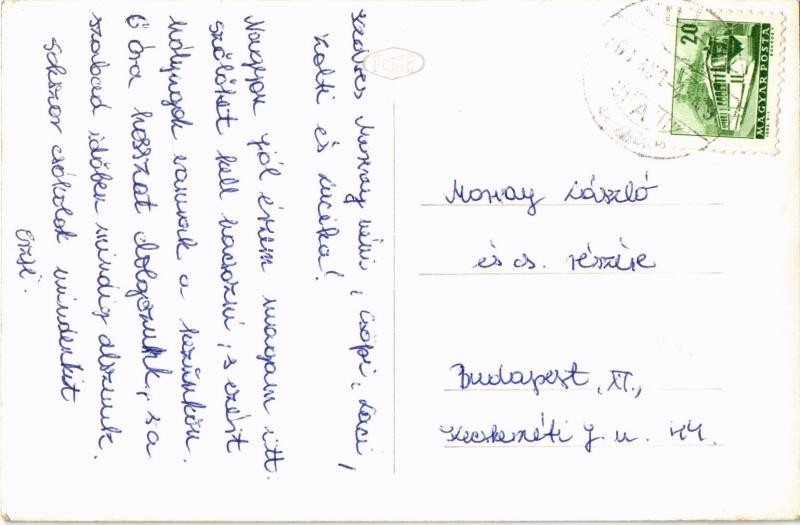 Kedves Morvay néni, Csöpi, Laci,
Zolti és Lucika!
Nagyon jól érzem magam itt.
szőlőket kell kacsozni, s ezért
hólyagok vannak a kezünkön.
6 óra hosszat dolgozunk, s a
szabad időben mindig alszunk.
Sokszor csókolok mindenkit
Erzsi.
FORTE
20
MAGYAR POSTA
Morvay László
és cs. részére
Budapest, XI.,
Kecskeméti J. u. 44.